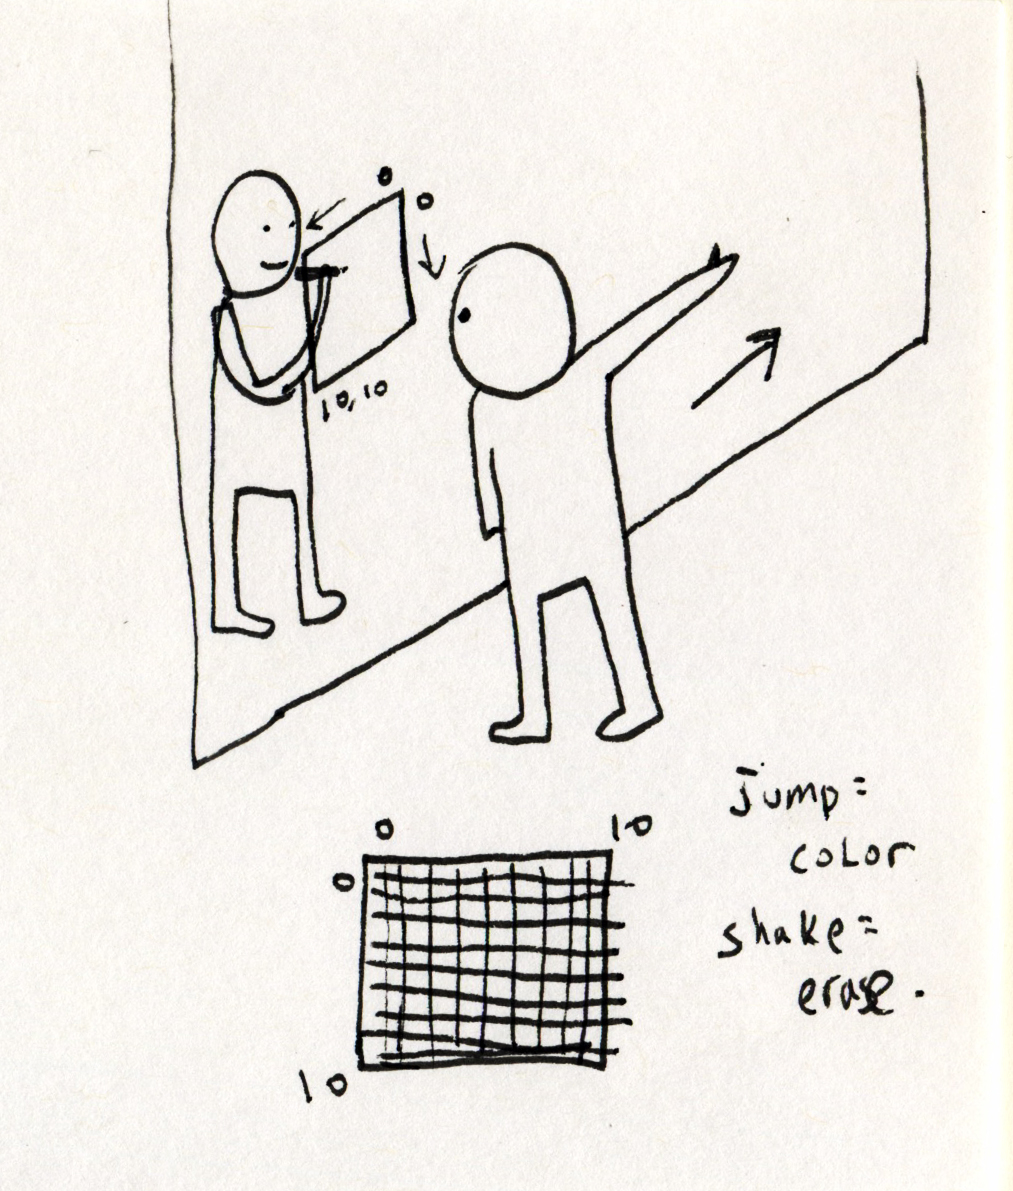 0
0
10,10
jump=
color
shake=
erase.
0 10
0
10